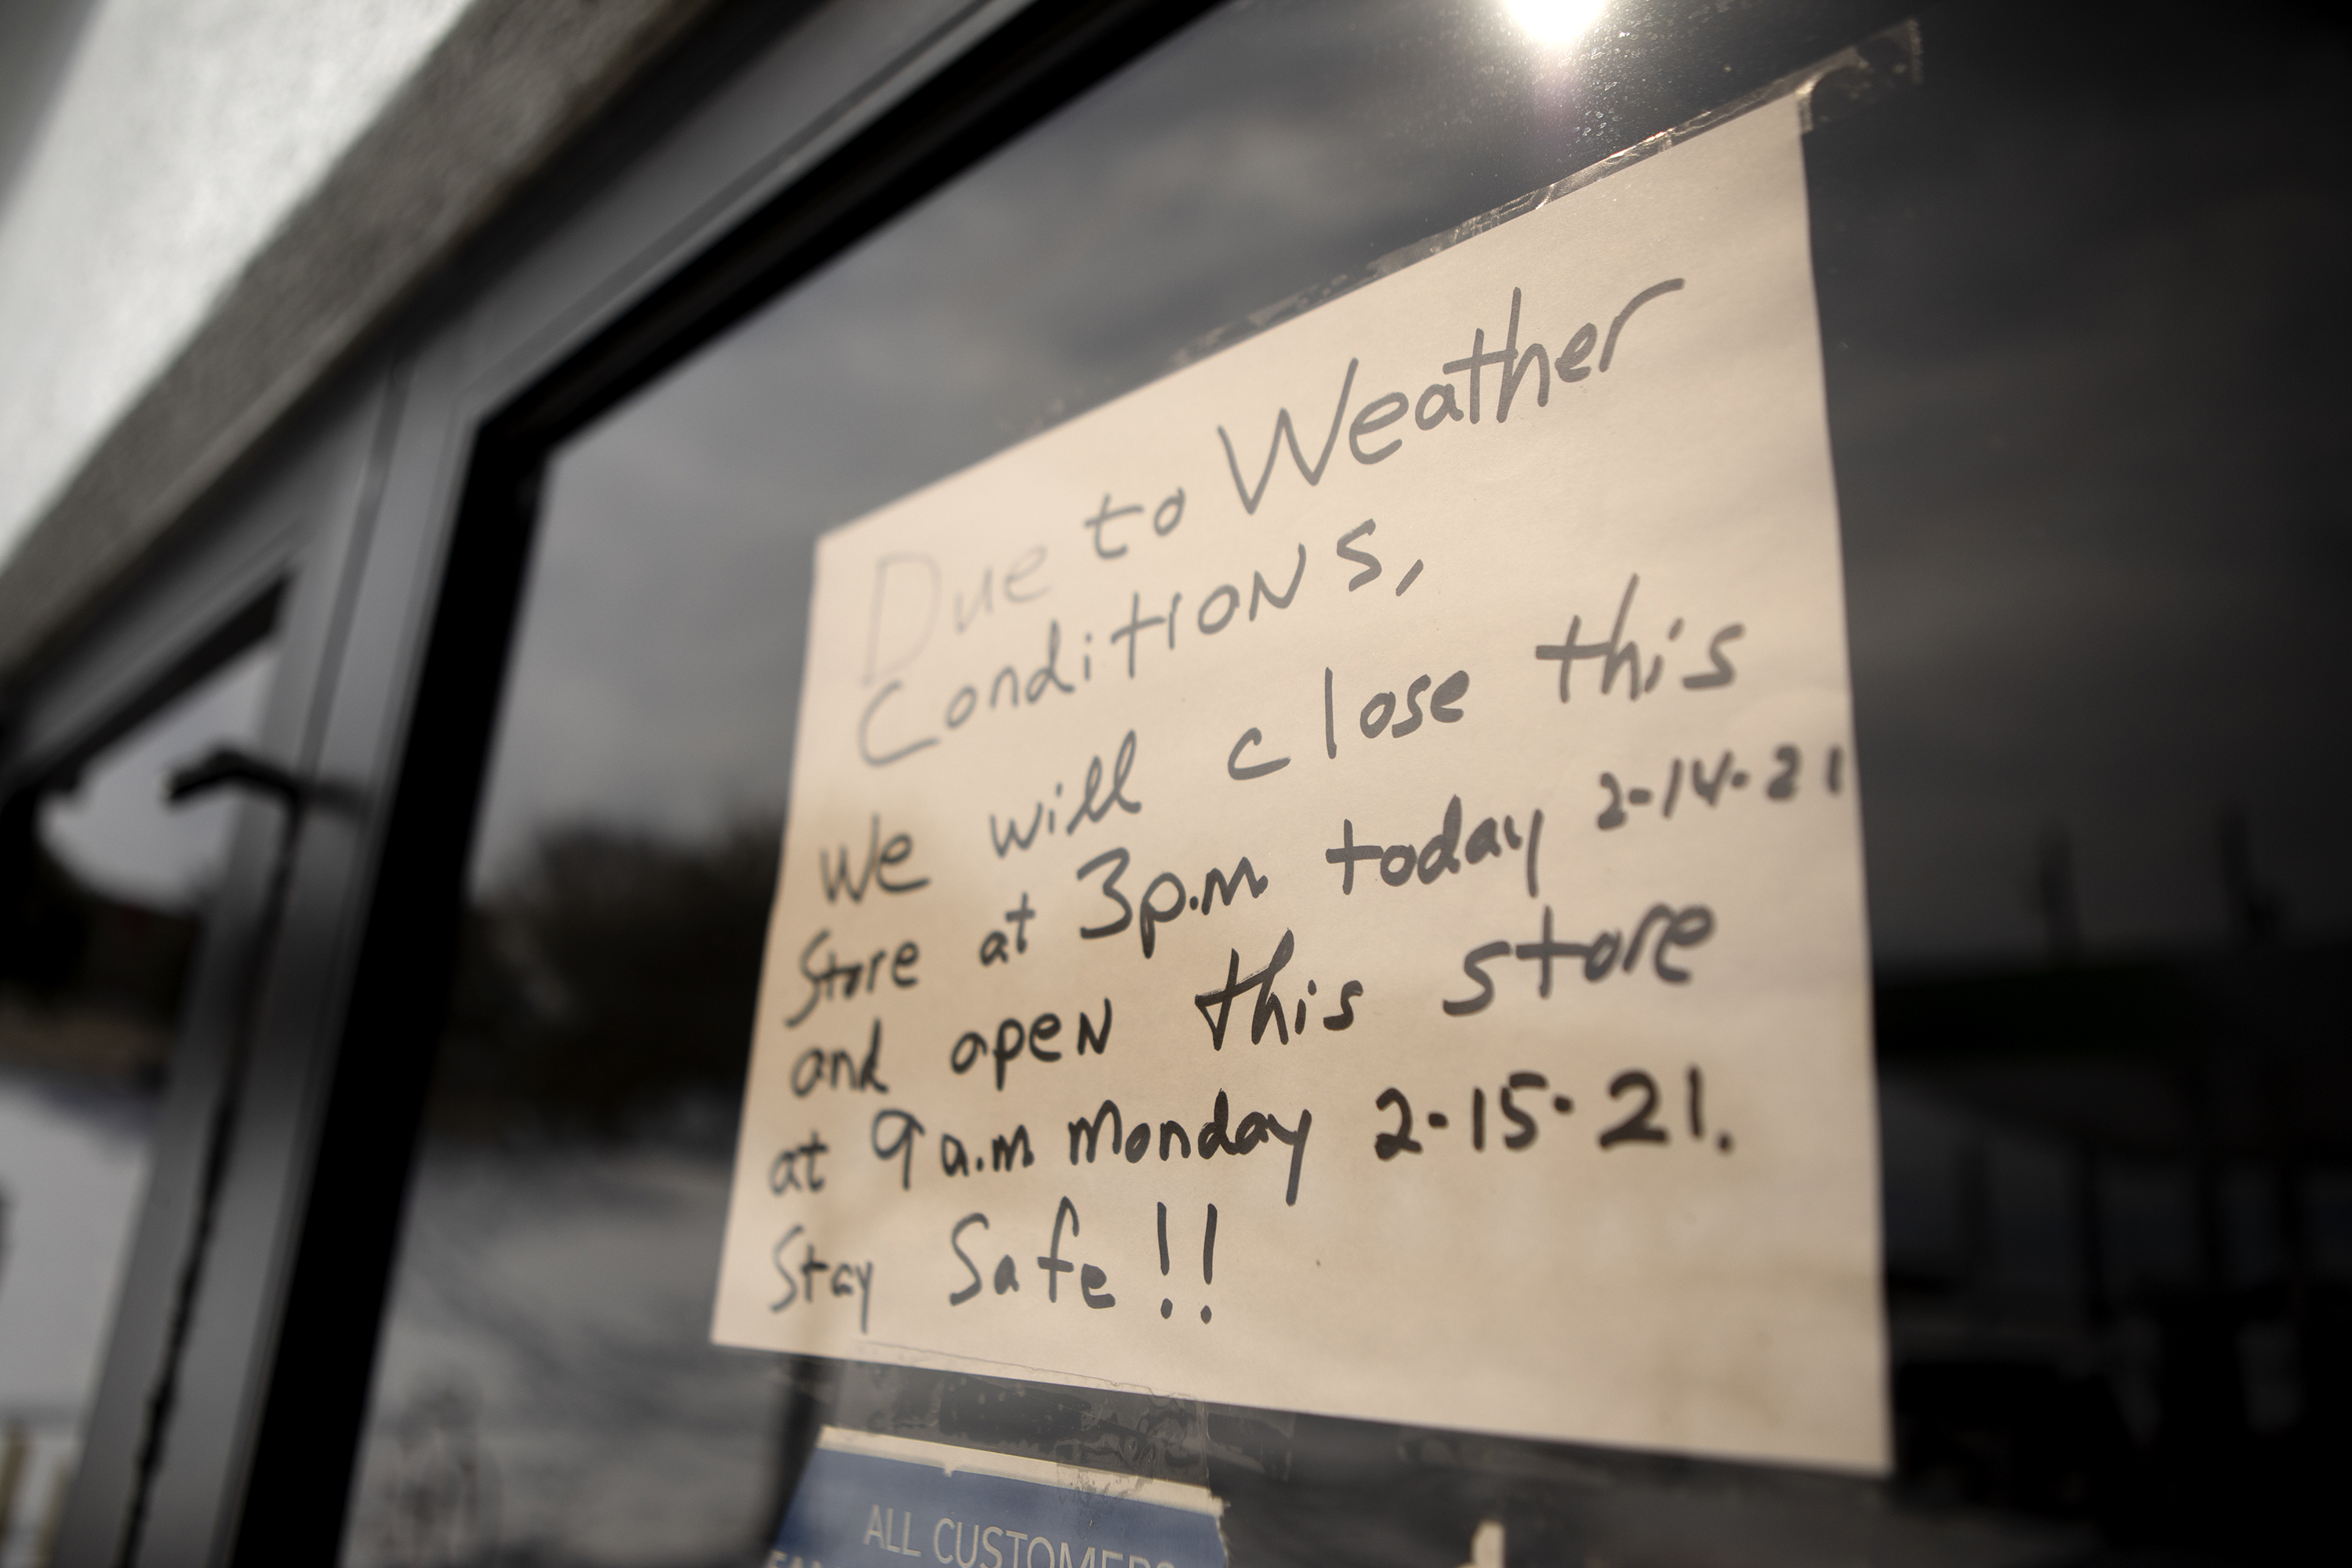 Due to Weather
Conditions,
We will close this
Store at 3p.m today 2-14-21
and open this store
at 9a.m Monday 2-15-21.
Stay Safe!!
ALL CUSTOMERS